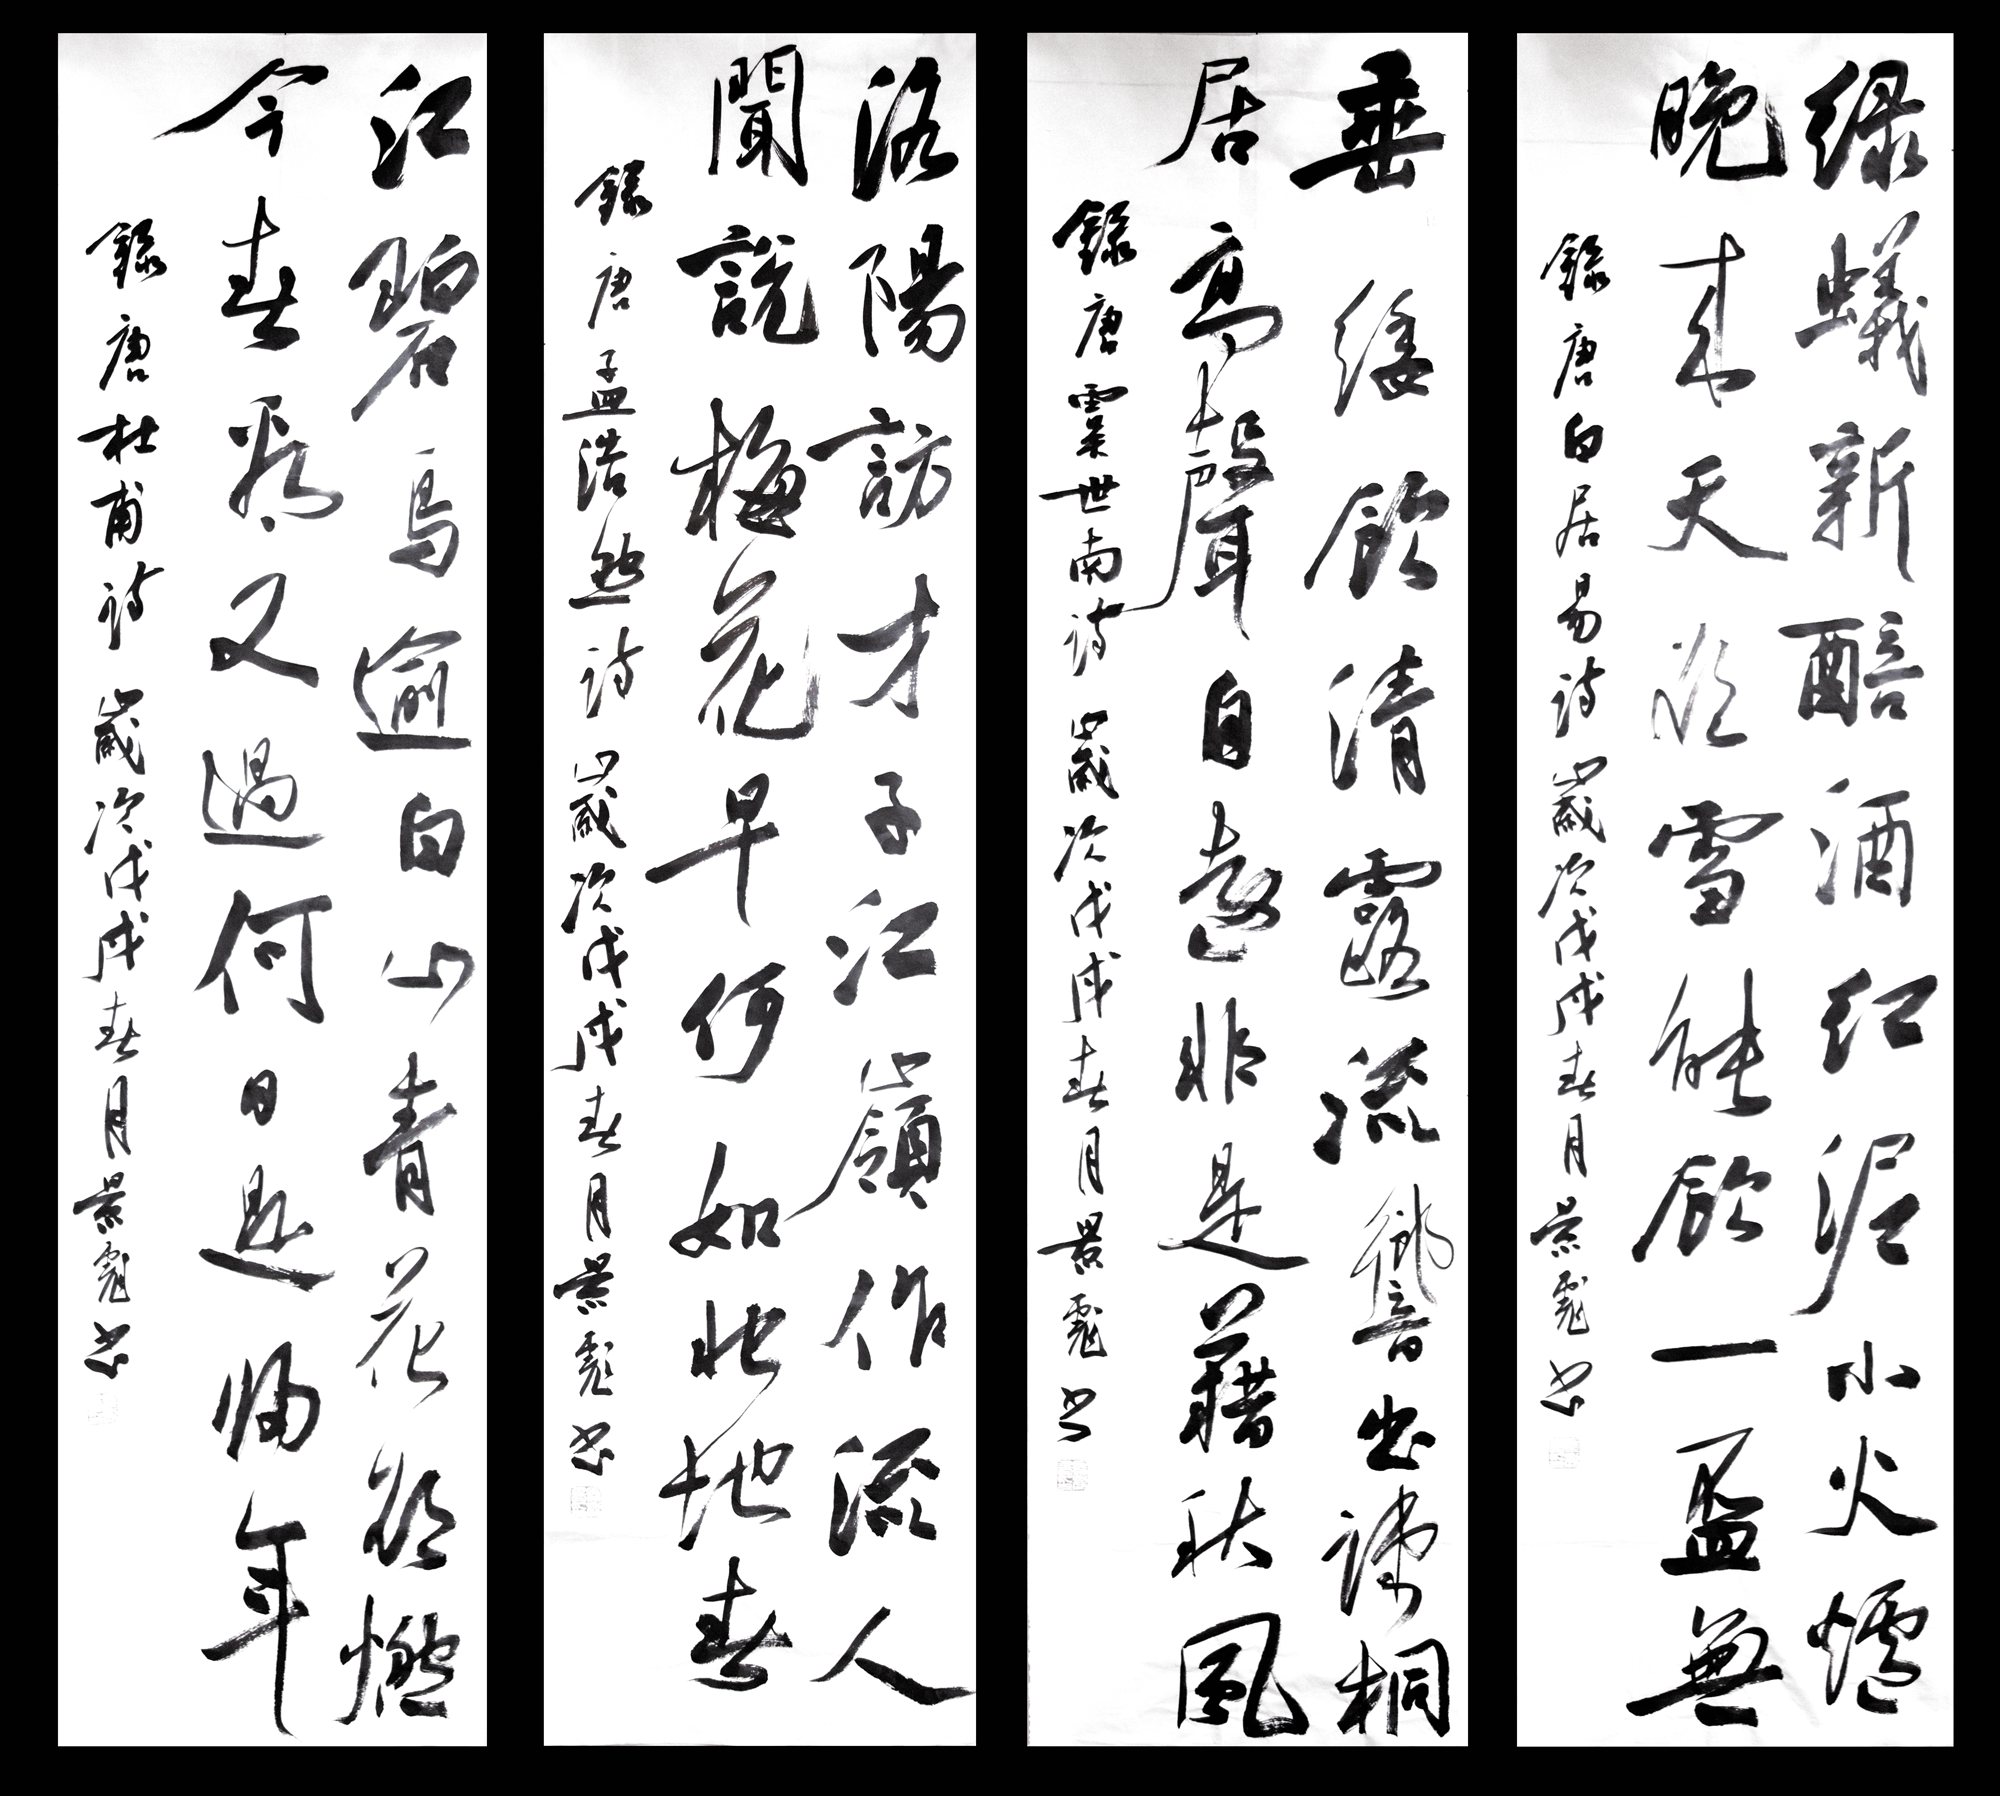 绿蟻新醅酒紅泥小火爐
晚来天欲雪能飲一盃無
錄唐白居易詩 歲次戊戌春月景彪书
垂緌飲清露流響出疎桐
居高聲自遠非是藉秋風
錄唐虞世南詩 歲次戊戌春月景彪书
洛陽訪才子江嶺作流人
聞說梅花早何如此地春
錄唐孟浩然詩 歲次戊戌春月景彪书
江碧鳥逾白山青花欲燃
今春看又過何日是歸年
錄唐杜甫詩 歲次戊戌春月景彪书